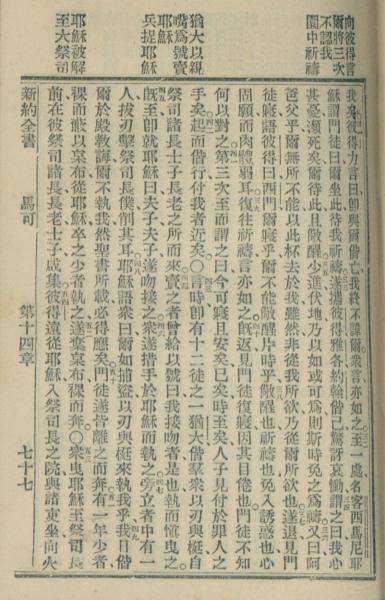 向彼得言
爾將三次
不認我
園中祈禱
猶大以親
嘴爲號賣
耶穌
兵捉耶穌
耶穌被解
至大祭司
我矣彼得力言曰卽與爾偕亡我終不諱爾衆言亦如之至一處名客西馬尼耶
穌謂門徒曰爾坐此待我祈禱遂攜彼得雅各約翰偕已驚訝哀慟謂之曰我心
甚憂瀕死矣爾待此且儆醒少進伏地乃以如或可爲則斯時免之爲禱又曰阿
爸父乎爾無所不能以此杯去於我雖然非從我所欲乃從爾所欲也遂退見門
徒寢語彼得曰西門爾寢乎爾不能儆醒片時乎儆醒也祈禱也免入誘惑也心
固願而肉體弱耳復往祈禱言亦如之旣返見門徒復寢因其目倦也門徒不知
何以對之第三次至而謂之曰今可寢且安矣已矣時至矣人子見付於罪人之
手矣起而偕行付我者近矣〇言時卽有十二徒之一猶大偕羣衆以刃與梃自
祭司諸長士子長老之所而來賣之者曾給以號曰我接吻者是也執而愼曳之
旣至卽就耶穌曰夫子夫子遂吻接之衆遂措手於耶穌而執之旁立者中有一
人拔刃擊祭司長僕削其耳耶穌語衆曰爾如捕盜以刃與梃來執我乎我日偕
爾於殿敎誨爾不執我然聖書所載必得應矣門徒遂皆離之而奔有一年少者
裸而以枲布從耶穌卒之少者執之遂棄枲布裸而奔〇衆曳耶穌至祭司長
前在彼祭司諸長長老士子咸集彼得遠從耶穌入祭司長之院與諸吏坐向火
新約全書 馬可 第十四章 七十七